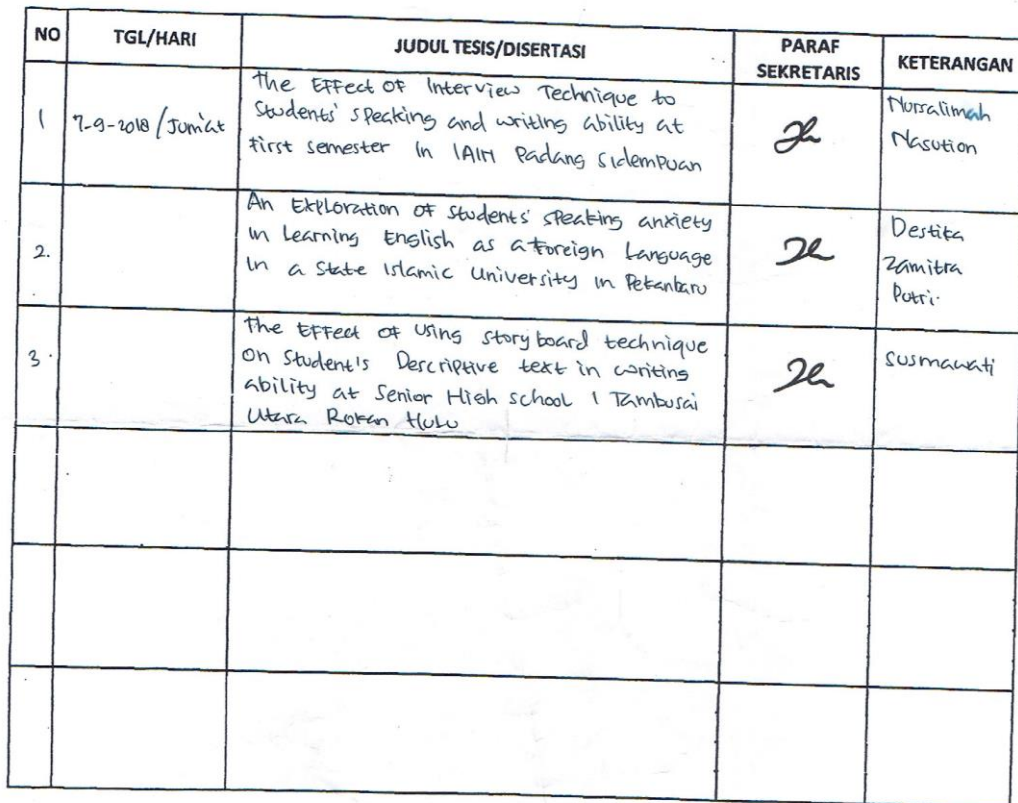 NO TGL/HARI JUDUL TESIS/DISERTASI PARAF SEKRETARIS KETERANGAN
1 7-9-2018/Jum'at
The Effect of Interview Technique to
Students' speaking and writing ability at
first semester in IAIN Padang Sidempuan
Nursalimah
Nasution
2.
An Exploration of students' speaking anxiety
in Learning English as a Foreign Language
in a State Islamic University in Pekanbaru
Destika
Zamitra
Putri.
3.
The Effect of Using storyboard technique
on Student's Dercriptive text in writing
ability at Senior High school 1 Tambusai
Utara Rokan Hulu
Susmawati